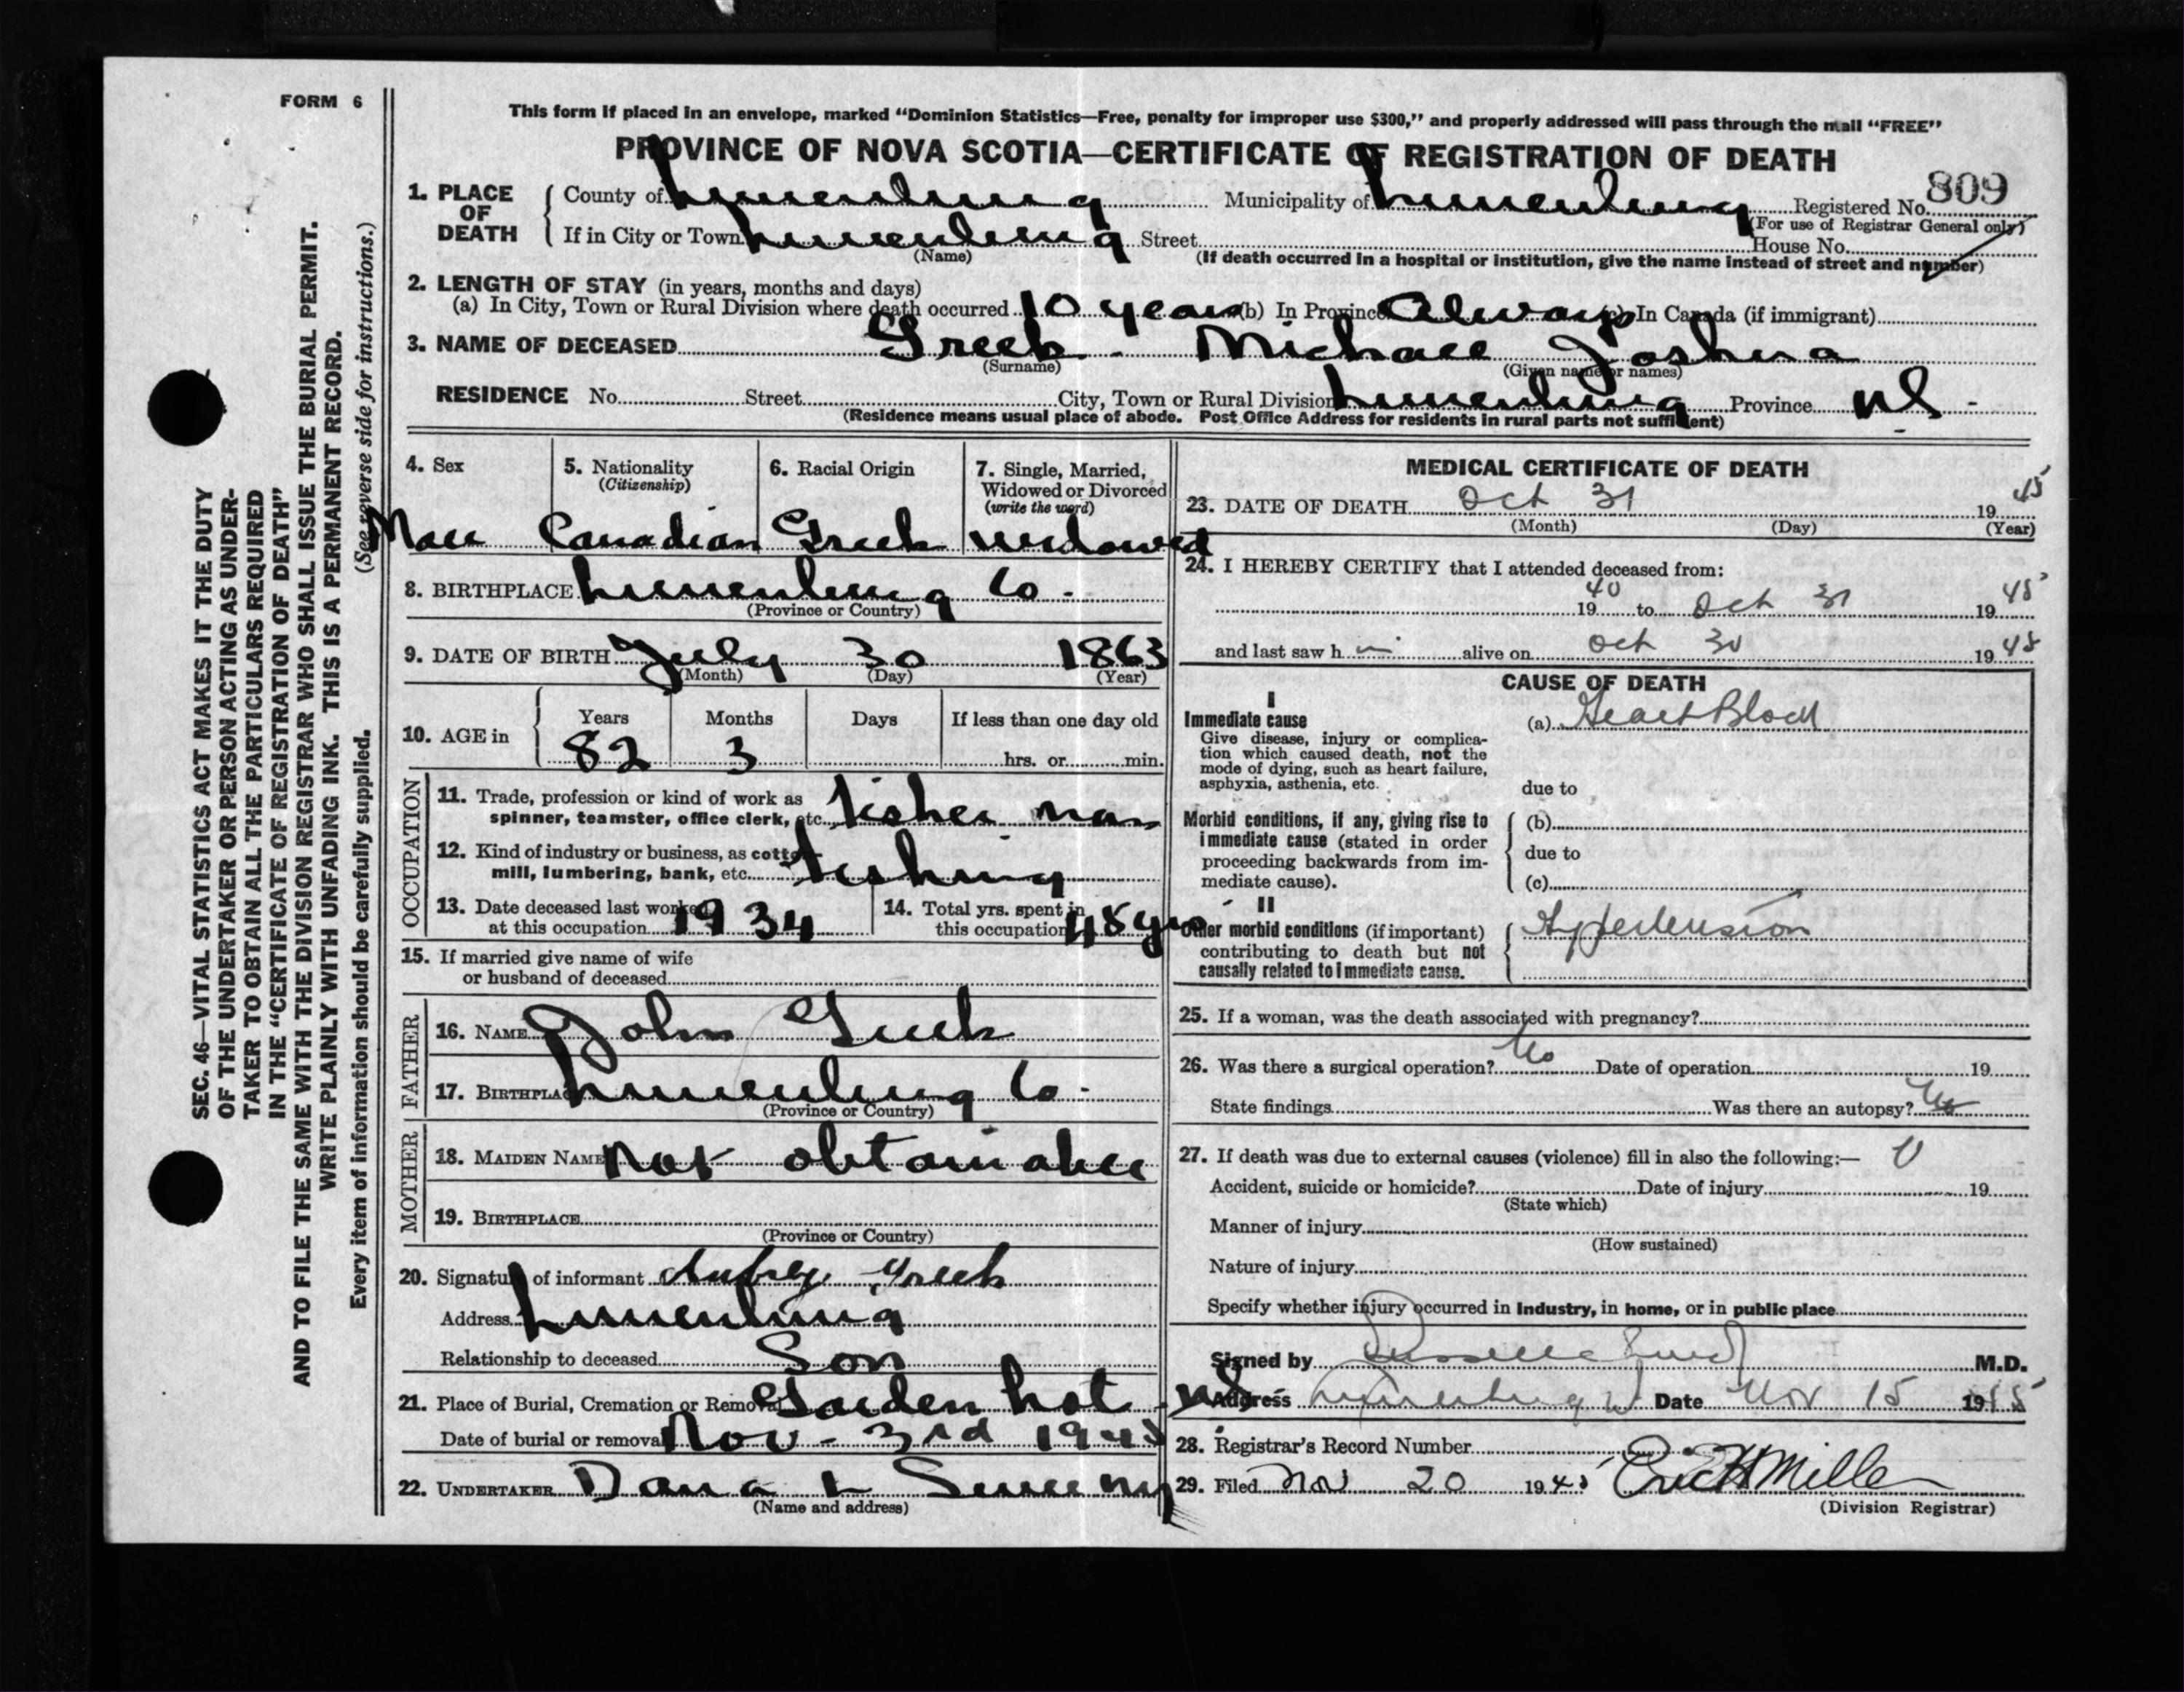 FORM 6
This form if placed in an envelope, marked “Dominion Statistics—Free, penalty for improper use $300,” and properly addressed will pass through the mail “FREE”
PROVINCE OF NOVA SCOTIA—CERTIFICATE OF REGISTRATION OF DEATH
1. PLACE OF DEATH
County of Lunenburg Municipality of Lunenburg Registered No. 809
(For use of Registrar General only)
If in City or Town Lunenburg Street House No.
(Name) (If death occurred in a hospital or institution, give the name instead of street and number)
2. LENGTH OF STAY (in years, months and days)
(a) In City, Town or Rural Division where death occurred 10 years (b) In Province Always (c) In Canada (if immigrant)
3. NAME OF DECEASED Greek - Michael Joshua
(Surname) (Given name or names)
RESIDENCE No. Street City, Town or Rural Division Lunenburg Province NS -
(Residence means usual place of abode. Post Office Address for residents in rural parts not sufficient)
4. Sex 5. Nationality 6. Racial Origin 7. Single, Married,
(Citizenship) Widowed or Divorced
(write the word)
Male Canadian Greek Widowed
8. BIRTHPLACE Lunenburg Co -
(Province or Country)
9. DATE OF BIRTH July 30 1863
(Month) (Day) (Year)
10. AGE in Years Months Days If less than one day old
82 3 hrs. or min.
OCCUPATION
11. Trade, profession or kind of work as
spinner, teamster, office clerk, etc. Fisher man
12. Kind of industry or business, as cotton
mill, lumbering, bank, etc. Fishing
13. Date deceased last worked
at this occupation 1934
14. Total yrs. spent in
this occupation 48 yrs
15. If married give name of wife
or husband of deceased
FATHER
16. NAME John Greek
17. BIRTHPLACE Lunenburg Co -
(Province or Country)
MOTHER
18. MAIDEN NAME Not obtainable
19. BIRTHPLACE
(Province or Country)
20. Signature of informant Aubrey Greek
Address Lunenburg
Relationship to deceased Son
21. Place of Burial, Cremation or Removal Garden Lot - NS
Date of burial or removal Nov - 3rd 1945
22. UNDERTAKER Dana L Sweeny
(Name and address)
MEDICAL CERTIFICATE OF DEATH
23. DATE OF DEATH Oct 31 1945
(Month) (Day) (Year)
24. I HEREBY CERTIFY that I attended deceased from:
1940 to Oct 31 1945
and last saw h im alive on Oct 30 1945
CAUSE OF DEATH
I
Immediate cause (a) Heart Block
Give disease, injury or complica-
tion which caused death, not the
mode of dying, such as heart failure,
asphyxia, asthenia, etc. due to
Morbid conditions, if any, giving rise to (b)
immediate cause (stated in order
proceeding backwards from im- due to
mediate cause). (c)
II
Other morbid conditions (if important) Hypertension
contributing to death but not
causally related to immediate cause.
25. If a woman, was the death associated with pregnancy?
26. Was there a surgical operation? No Date of operation 19
State findings Was there an autopsy? No
27. If death was due to external causes (violence) fill in also the following:—
Accident, suicide or homicide? Date of injury 19
(State which)
Manner of injury
(How sustained)
Nature of injury
Specify whether injury occurred in Industry, in home, or in public place
Signed by M.D.
Address Lunenburg Date Nov 15 1945
28. Registrar's Record Number
29. Filed Nov 20 1945 Eric H Miller
(Division Registrar)
SEC. 46—VITAL STATISTICS ACT MAKES IT THE DUTY
OF THE UNDERTAKER OR PERSON ACTING AS UNDER-
TAKER TO OBTAIN ALL THE PARTICULARS REQUIRED
IN THE “CERTIFICATE OF REGISTRATION OF DEATH”
AND TO FILE THE SAME WITH THE DIVISION REGISTRAR WHO SHALL ISSUE THE BURIAL PERMIT.
WRITE PLAINLY WITH UNFADING INK. THIS IS A PERMANENT RECORD.
Every item of information should be carefully supplied. (See reverse side for instructions.)